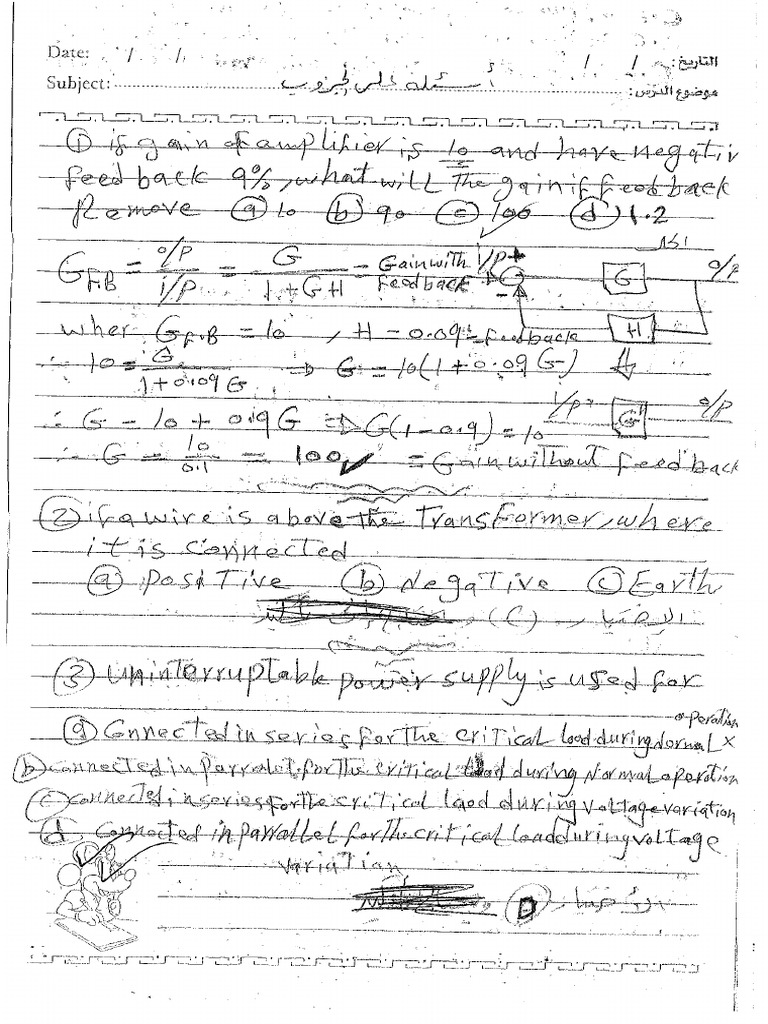 Date: / /
التاريخ: / /
Subject:
أسئلة على
موضوع الدرس:
① if gain of amplifier is 10 and have negativ
feed back 9%, what will the gain if feed back
Remove ⓐ 10 ⓑ 90 ⓒ 100 ⓓ 1.2
G F.B = O/P / I/P = G / 1+GH = Gain with feedback
I/P + - G O/P
H
wher G F.B = 10 , H = 0.09 = feedback
∴ 10 = G / 1+0.09G ⇒ G = 10(1+0.09G)
I/P G O/P
∴ G = 10 + 0.9G ⇒ G(1-0.9) = 10
∴ G = 10 / 0.1 = 100 ✓ = Gain without feedback
② if a wire is above the Transformer, where
it is connected
ⓐ positive ⓑ Negative ⓒ Earth
(C)
③ Uninterruptable power supply is used for
ⓐ Connected in series for the critical load during Normal operation ×
ⓑ connected in Parralet, for the critical load during Normal operation
ⓒ connected in series for the critical laod during voltage variation
ⓓ. Connected in parrallel for the critical load during voltage
variation
D